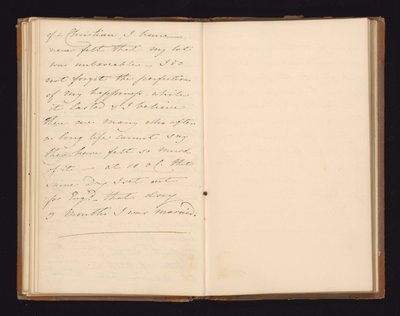 of a Christian, I have
never felt that my lot
was unbearable — I do
not forget the perfection
of my happiness, while
it lasted & I believe
there are many who after
a long life cannot say
they have felt so much
of it — at 10 o'C. that
same day I set out
for Engd. that day
9 Months I was married.